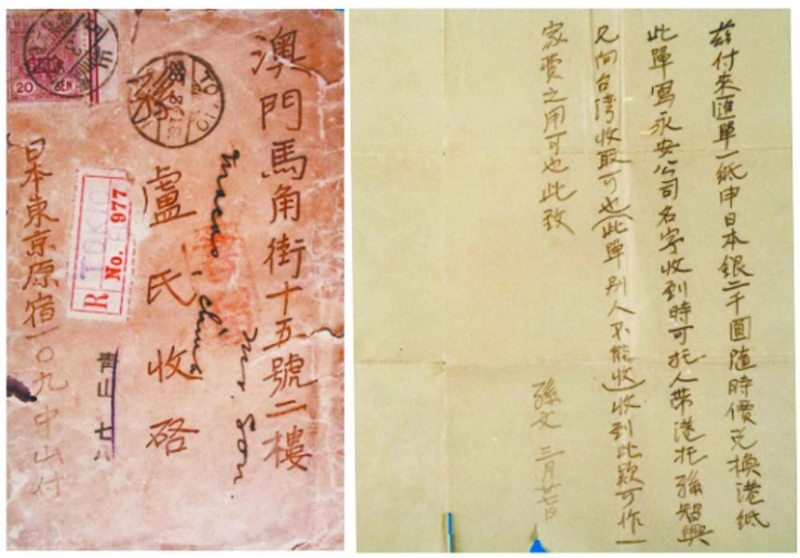 澳門馬角街十五號二樓
孫
盧氏收啓
Macao, China
Mrs. Son.
日本東京原宿一〇九中山付
青山七八
20
SEN
TOKIO
R
TOKIO
No. 977
茲付來匯單一紙申日本銀二千圓隨時價兌換港紙
此單寫永安公司名字收到時可托人帶港托孫智興
兄向台灣收取可也(此單別人不能收)收到此款可作一
家費之用可也此致
孫文 三月廿七日